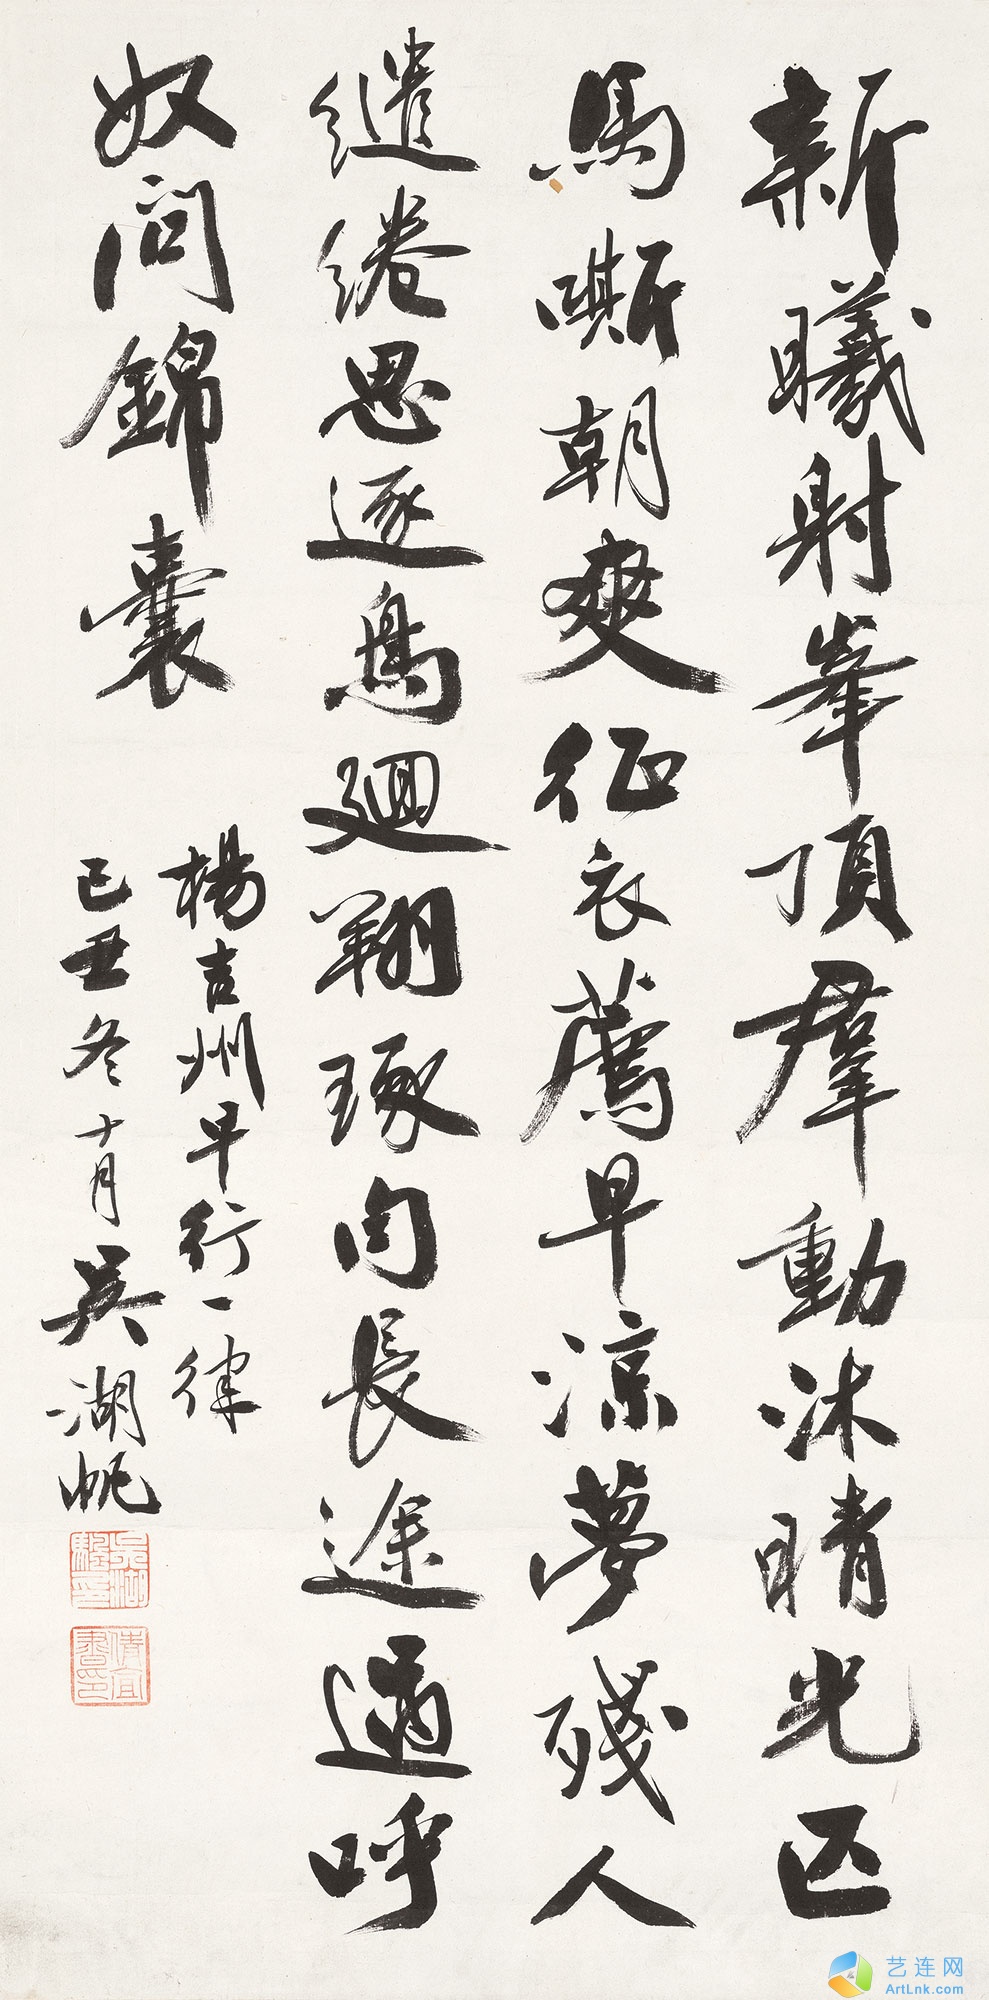 新曦射峯頂羣動沐晴光匹
馬嘶朝爽征衣薦早涼夢殘人
繾綣思逐鳥廻翔琢句長途適呼
奴問錦囊
楊吉州早行一律
己丑冬十月吳湖帆
吳湖颿印
艺连网
ArtLnk.com